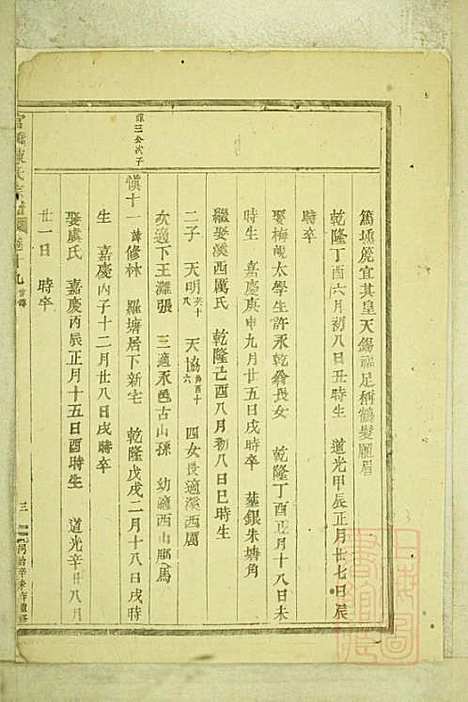 篤壎箎宜其皇天錫祉足稱鶴髮龐眉
乾隆丁酉六月初八日丑時生 道光甲辰正月廿七日辰
時卒
娶梅峴太學生許永乾翁長女 乾隆丁酉十月十八日未
時生 嘉慶庚申九月廿五日戌時卒 墓銀朱塘角
繼娶溪西厲氏 乾隆己酉八月初八日巳時生
二子 天明 天協 四女長適溪西厲
次適下王灘張 三適永邑古山孫 幼適西山馬
雍三公次子
愼十一諱修林 羅塘居下新宅 乾隆戊戌二月十八日戌時
生 嘉慶丙子十二月廿八日戌時卒
娶虞氏 嘉慶丙辰正月十五日酉時生 道光辛 八月
廿一日 時卒
陳氏宗譜 卷十九
三 同治辛未年重修